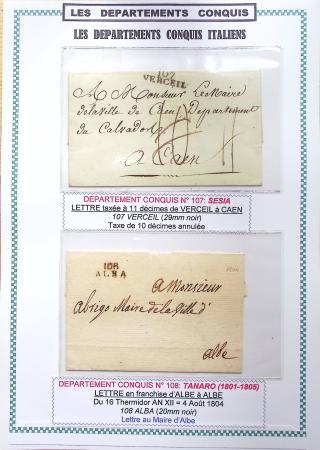 LES DEPARTEMENTS CONQUIS
LES DEPARTEMENTS CONQUIS ITALIENS
107
VERCEIL
A Monsieur Le Maire
de la Ville de Caen Departement
du Calvados
a Caen
DEPARTEMENT CONQUIS N° 107: SESIA
LETTRE taxée à 11 décimes de VERCEIL à CAEN
107 VERCEIL (29mm noir)
Taxe de 10 décimes annulée
108
ALBA
a Monsieur
abrigo Maire de la Ville d'
albe
DEPARTEMENT CONQUIS N° 108: TANARO (1801-1805)
LETTRE en franchise d'ALBE à ALBE
Du 16 Thermidor AN XII = 4 Août 1804
108 ALBA (20mm noir)
Lettre au Maire d'Albe